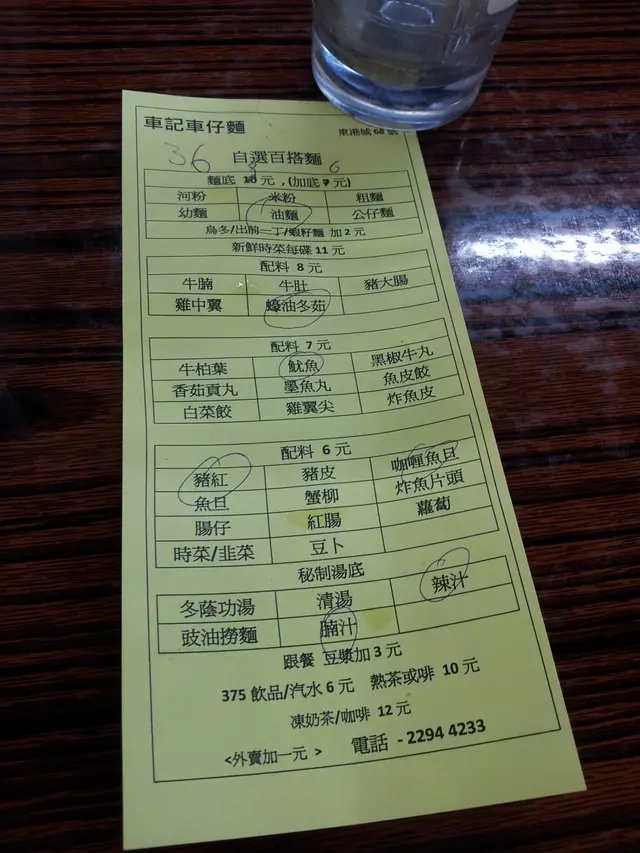 車記車仔麵 東港城 68 號
36
自選百搭麵
8 6
麵底 10 元 , (加底 7 元)
河粉 米粉 粗麵
幼麵 油麵 公仔麵
烏冬/出前一丁/蝦籽麵 加 2 元
新鮮時菜每碟 11 元
配料 8 元
牛腩 牛肚 豬大腸
雞中翼 蠔油冬茹
配料 7 元
牛柏葉 魷魚 黑椒牛丸
香茹貢丸 墨魚丸 魚皮餃
白菜餃 雞翼尖 炸魚皮
配料 6 元
豬紅 豬皮 咖喱魚旦
魚旦 蟹柳 炸魚片頭
腸仔 紅腸 蘿蔔
時菜/韭菜 豆卜
秘制湯底
冬蔭功湯 清湯 辣汁
豉油撈麵 腩汁
跟餐 豆漿加 3 元
375 飲品/汽水 6 元 熱茶或啡 10 元
凍奶茶/咖啡 12 元
<外賣加一元 > 電話 - 2294 4233